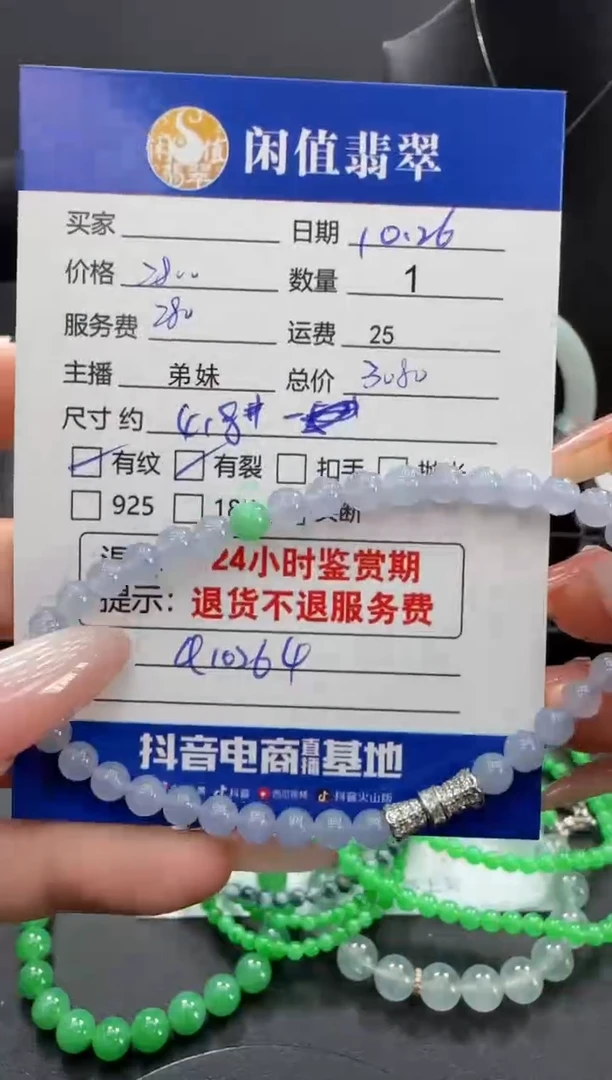 闲值翡翠
买家
日期 10.26
价格 2800
数量 1
服务费 280
运费 25
主播 弟妹
总价 3080
尺寸 约
有纹 有裂 扣手
925
24小时鉴赏期
提示：退货不退服务费
Q10264
抖音电商直播基地
抖音 西瓜视频 抖音火山版